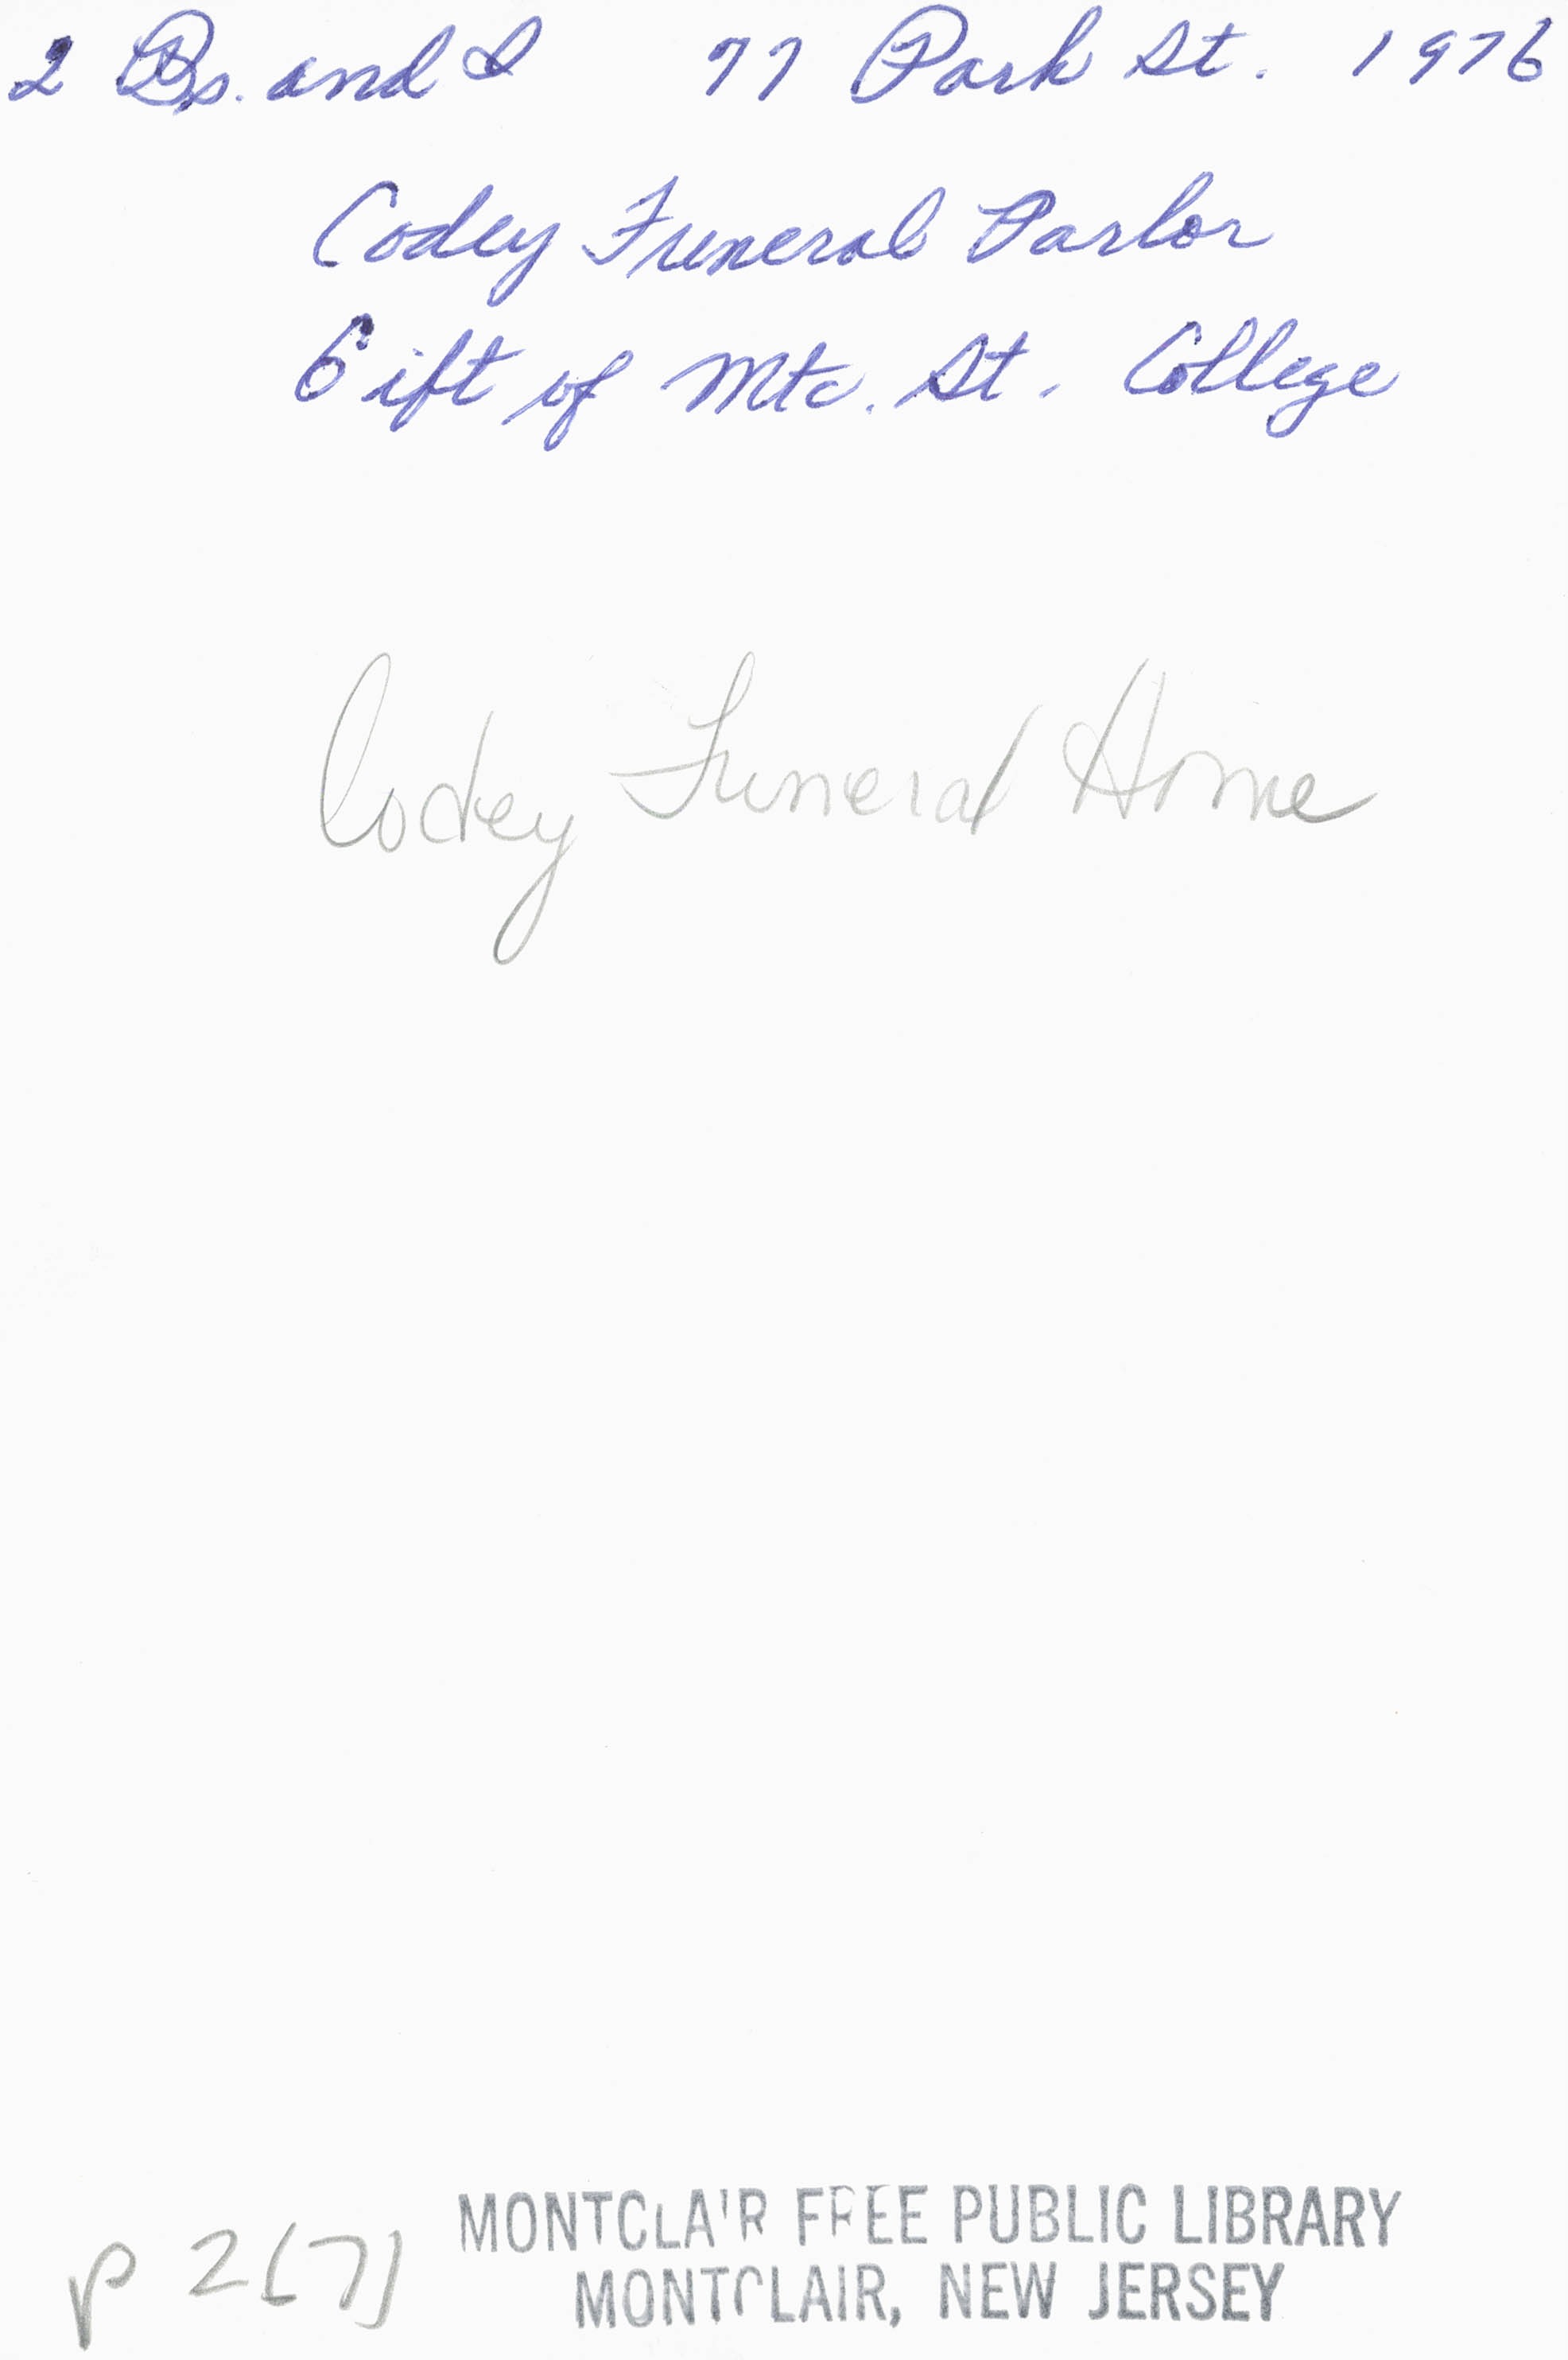 2 Bs. and I 77 Park St. 1976
Codey Funeral Parlor
Gift of Mtc. St. College
Codey Funeral Home
MONTCLAIR FREE PUBLIC LIBRARY
p 2(7) MONTCLAIR, NEW JERSEY